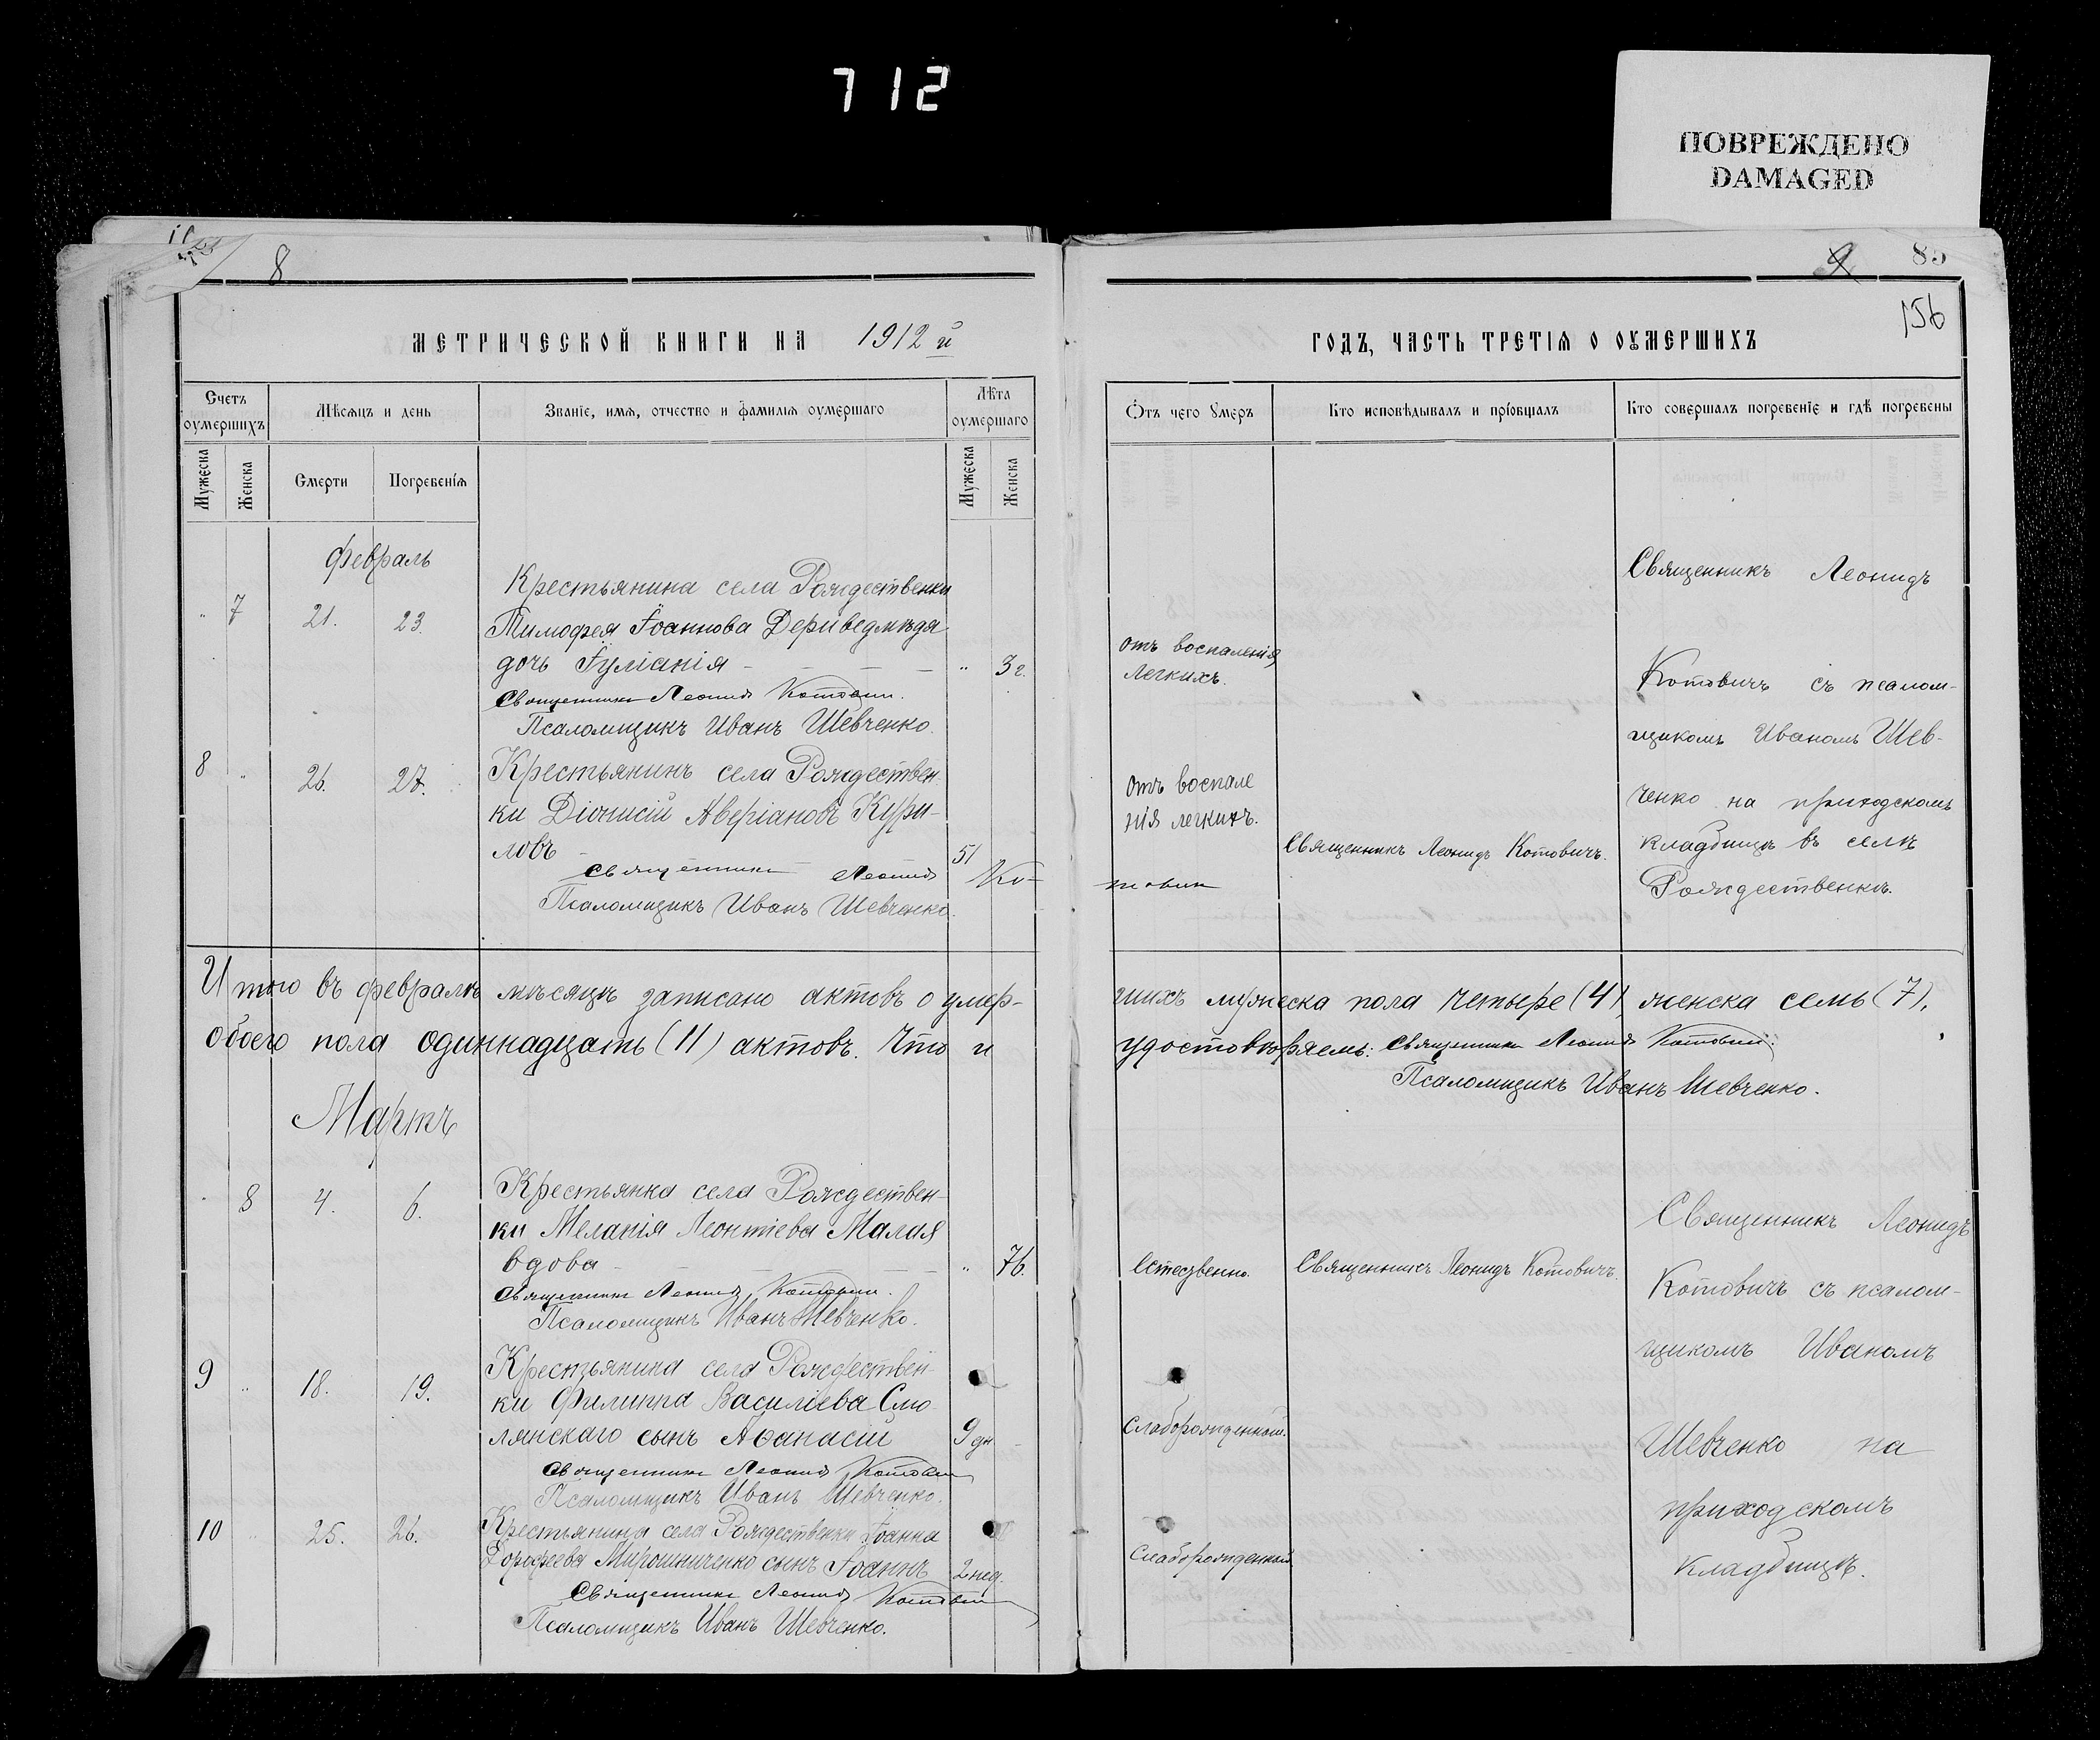 712
ПОВРЕЖДЕНО
DAMAGED
8
9
85
156
МЕТРИЧЕСКОЙ КНИГИ НА 1912 й
ГОДЪ, ЧАСТЬ ТРЕТІѦ О ОУМЕРШИХЪ
Счетъ оумершихъ
Мѣсяцъ и день
Званіе, имѧ, отчество и фамиліѧ оумершаго
Лѣта оумершаго
Отъ чего оумеръ
Кто исповѣдывалъ и пріобщалъ
Кто совершалъ погребеніе и гдѣ погребены
Мужеска
Женска
Смерти
Погребеніѧ
Мужеска
Женска
Февраль
" 7 21. 23.
Крестьянина села Рождественки
Тимофея Іоаннова Дериведмѣдя
дочь Іуліанія - - - - " 3 г.
Священникъ Леонид Котович.
Псаломщикъ Иванъ Шевченко.
отъ воспаленія
легкихъ.
Священникъ Леонидъ
Котовичъ съ псалом-
щикомъ Иваномъ Шев-
ченко на приходскомъ
кладбищѣ въ селѣ
Рождественкѣ.
8 " 26. 27.
Крестьянинъ села Рождествен
ки Діонисій Аверіановъ Кури-
ловъ - 51
Священникъ Леонид Ко-
тович
Псаломщикъ Иванъ Шевченко.
отъ воспале
нія легкихъ.
Священникъ Леонидъ Котовичъ.
Итого въ февралѣ мѣсяцѣ записано актовъ о умер-
шихъ мужеска пола четыре (4), женска семь (7),
обоего пола одиннадцать (11) актовъ. Что и
удостовѣряемъ: Священникъ Леонид Котович.
Псаломщикъ Иванъ Шевченко.
Мартъ
8 4. 6.
Крестьянка села Рождествен-
ки Меланія Леонтіева Малая
вдова - - - - " 76.
Священникъ Леонид Котович.
Псаломщикъ Иванъ Шевченко.
Естественно.
Священникъ Леонидъ Котовичъ.
Священникъ Леонидъ
Котовичъ съ псалом-
щикомъ Иваномъ
Шевченко на
приходскомъ
кладбищѣ.
9 " 18. 19.
Крестьянина села Рождествен-
ки Филиппа Василіева Смо
лянскаго сынъ Аѳанасій 9 дн
Священникъ Леонид Котович
Псаломщикъ Иванъ Шевченко.
Слаборожденный.
10 " 25. 26.
Крестьянина села Рождественки Іоанна
Дороѳеева Мирошниченко сынъ Іоаннъ 2 нед.
Священникъ Леонид Котович
Псаломщикъ Иванъ Шевченко.
Слаборожденный